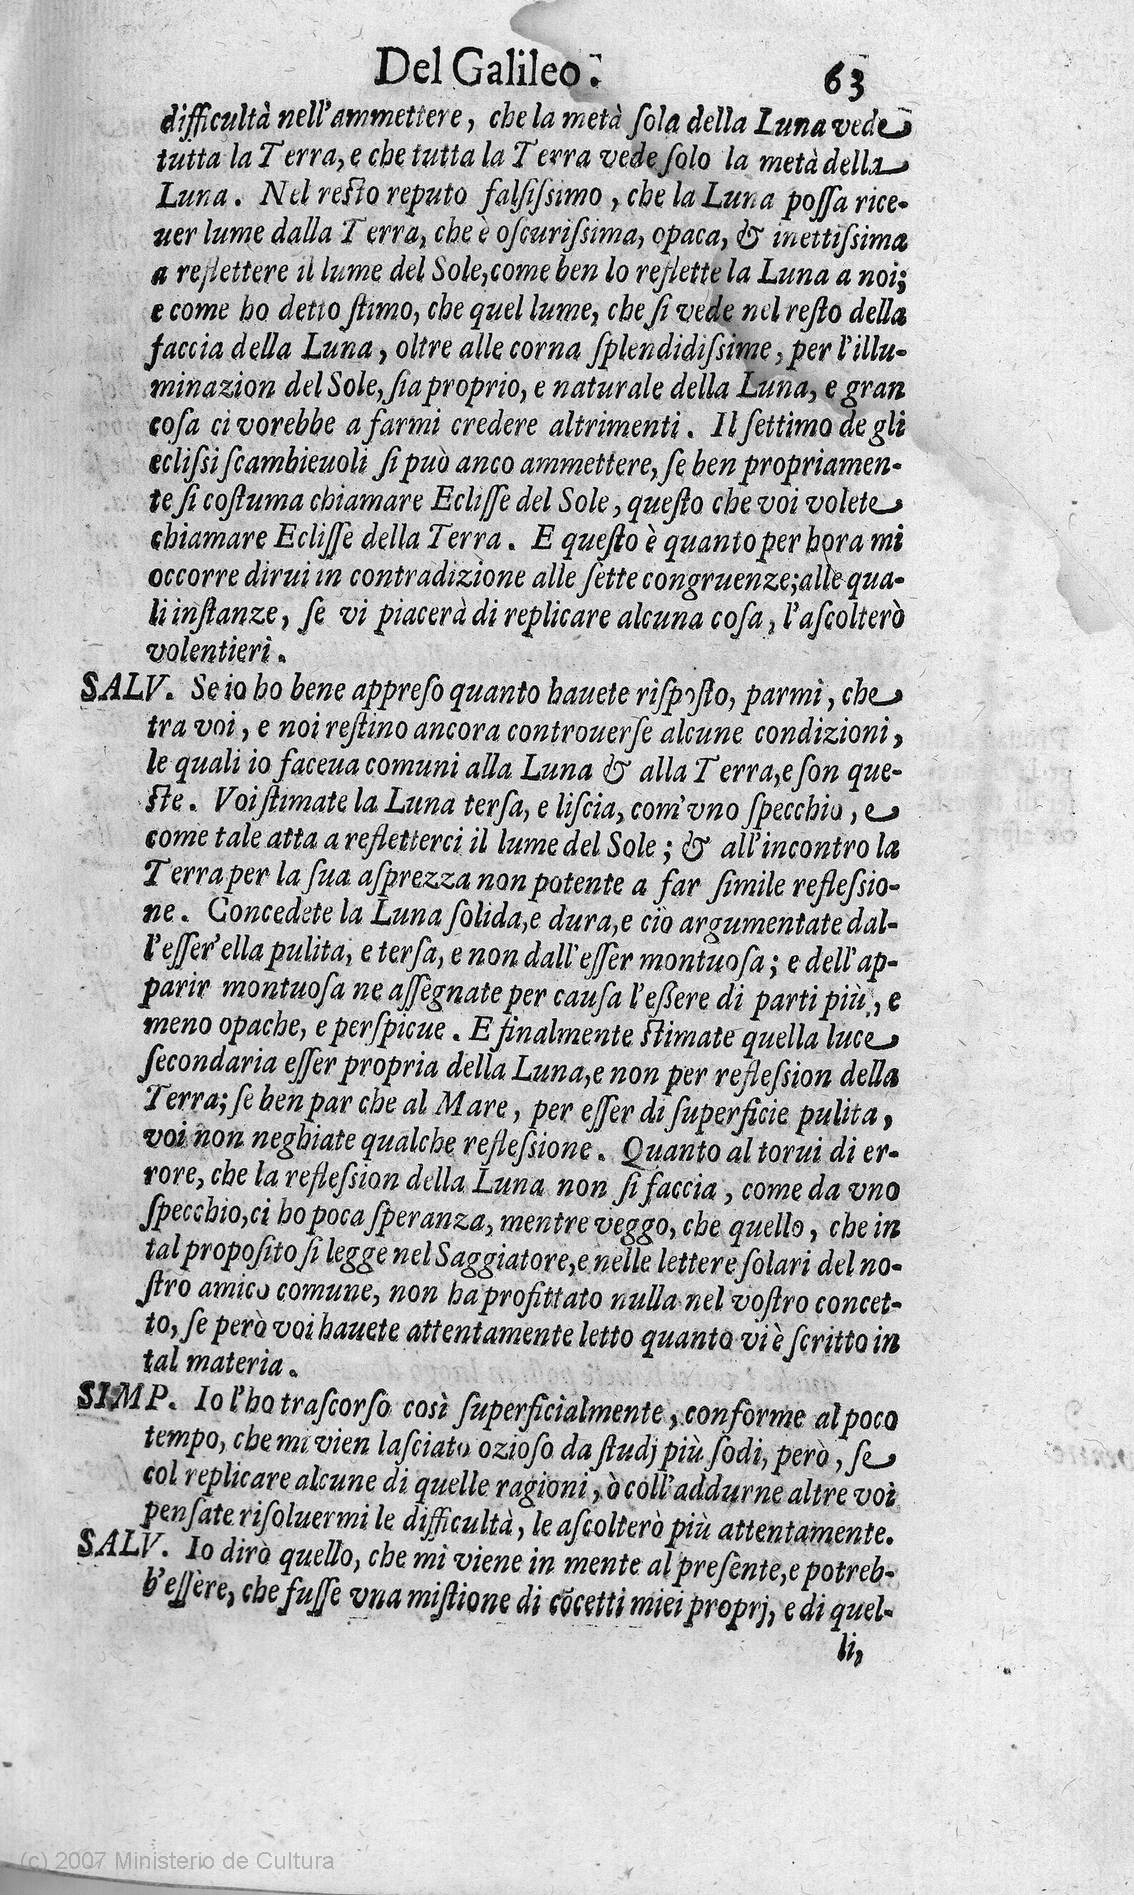 Del Galileo. 63
difficultà nell'ammettere, che la metà ſola della Luna vede
tutta la Terra, e che tutta la Terra vede ſolo la metà della
Luna. Nel reſto reputo falſiſsimo, che la Luna poſſa rice-
uer lume dalla Terra, che è oſcuriſsima, opaca, & inettiſsima
a reflettere il lume del Sole, come ben lo reflette la Luna a noi;
e come ho detto ſtimo, che quel lume, che ſi vede nel reſto della
faccia della Luna, oltre alle corna ſplendidiſsime, per l'illu-
minazion del Sole, ſia proprio, e naturale della Luna, e gran
coſa ci vorebbe a farmi credere altrimenti. Il ſettimo de gli
ecliſsi ſcambieuoli ſi può anco ammettere, ſe ben propriamen-
te ſi coſtuma chiamare Ecliſſe del Sole, queſto che voi volete
chiamare Ecliſſe della Terra. E queſto è quanto per hora mi
occorre dirui in contradizione alle ſette congruenze; alle qua-
li inſtanze, ſe vi piacerà di replicare alcuna coſa, l'aſcolterò
volentieri.
SALV. Se io ho bene appreſo quanto hauete riſpoſto, parmi, che
tra voi, e noi reſtino ancora controuerſe alcune condizioni,
le quali io faceua comuni alla Luna & alla Terra, e ſon que-
ſte. Voi ſtimate la Luna terſa, e liſcia, com'vno ſpecchio, e
come tale atta a refletterci il lume del Sole; & all'incontro la
Terra per la ſua aſprezza non potente a far ſimile refleſsio-
ne. Concedete la Luna ſolida, e dura, e ciò argumentate dal-
l'eſſer'ella pulita, e terſa, e non dall'eſſer montuoſa; e dell'ap-
parir montuoſa ne aſſegnate per cauſa l'eßere di parti più, e
meno opache, e perſpicue. E finalmente ſtimate quella luce
ſecondaria eſſer propria della Luna, e non per refleſsion della
Terra; ſe ben par che al Mare, per eſſer di ſuperficie pulita,
voi non neghiate qualche refleſsione. Quanto al torui di er-
rore, che la refleſsion della Luna non ſi faccia, come da vno
ſpecchio, ci ho poca ſperanza, mentre veggo, che quello, che in
tal propoſito ſi legge nel Saggiatore, e nelle lettere ſolari del no-
ſtro amico comune, non ha profittato nulla nel voſtro concet-
to, ſe però voi hauete attentamente letto quanto vi è ſcritto in
tal materia.
SIMP. Io l'ho traſcorſo così ſuperficialmente, conforme al poco
tempo, che mi vien laſciato ozioſo da ſtudj più ſodi, però, ſe
col replicare alcune di quelle ragioni, ò coll'addurne altre voi
penſate riſoluermi le difficultà, le aſcolterò più attentamente.
SALV. Io dirò quello, che mi viene in mente al preſente, e potreb-
b'eſſere, che fuſſe vna miſtione di cōcetti miei proprj, e di quel-
li,
(c) 2007 Ministerio de Cultura